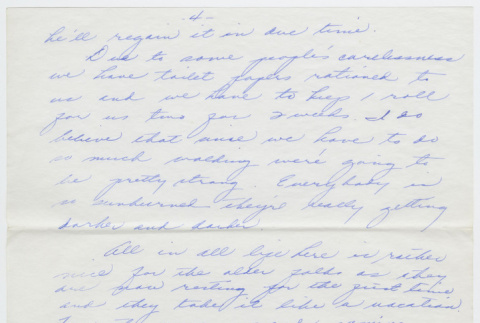 -4-
he'll regain it in due time.
Due to some people's carelessness
we have toilet papers rationed to
us and we have to keep 1 roll
for us two for 2 weeks. I do
believe that since we have to do
so much walking we're going to
be pretty strong. Everybody is
so sunburned they're really getting
darker and darker
All in all life here is rather
nice for the older folks as they
are now resting for the first time
and they take it like a vacation.